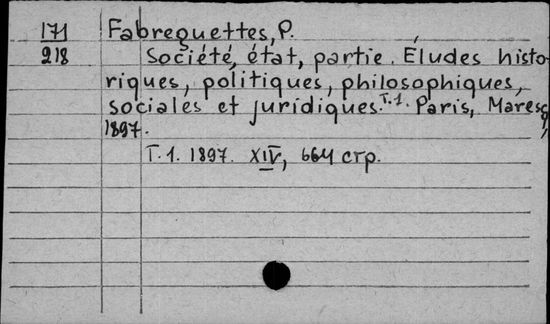 171 Fabreguettes, P.
218 Société, état, partie. Études histo-
riques, politiques, philosophiques,
sociales et juridiques. T.1. Paris, Maresq,
1897.
T.1. 1897. XIV, 664 стр.